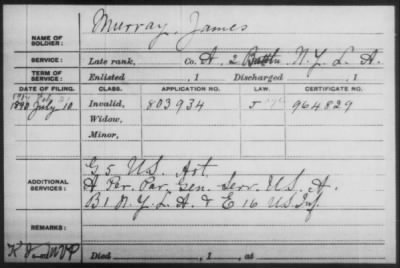 NAME OF SOLDIER: Murray, James
SERVICE: Late rank, Co. A. 2 Battn N.Y. L. A.
TERM OF SERVICE: Enlisted , 1 Discharged , 1
DATE OF FILING. CLASS. APPLICATION NO. LAW. CERTIFICATE NO.
1890 July 10 Invalid, 803934 J 964829
Widow,
Minor,
G 5 U.S. Art.
ADDITIONAL SERVICES: A Per. Par. Gen. Serv. U.S. A.
B 1 N.Y. L. A. & E 16 U.S. Inf
REMARKS:
Died , 1 , at